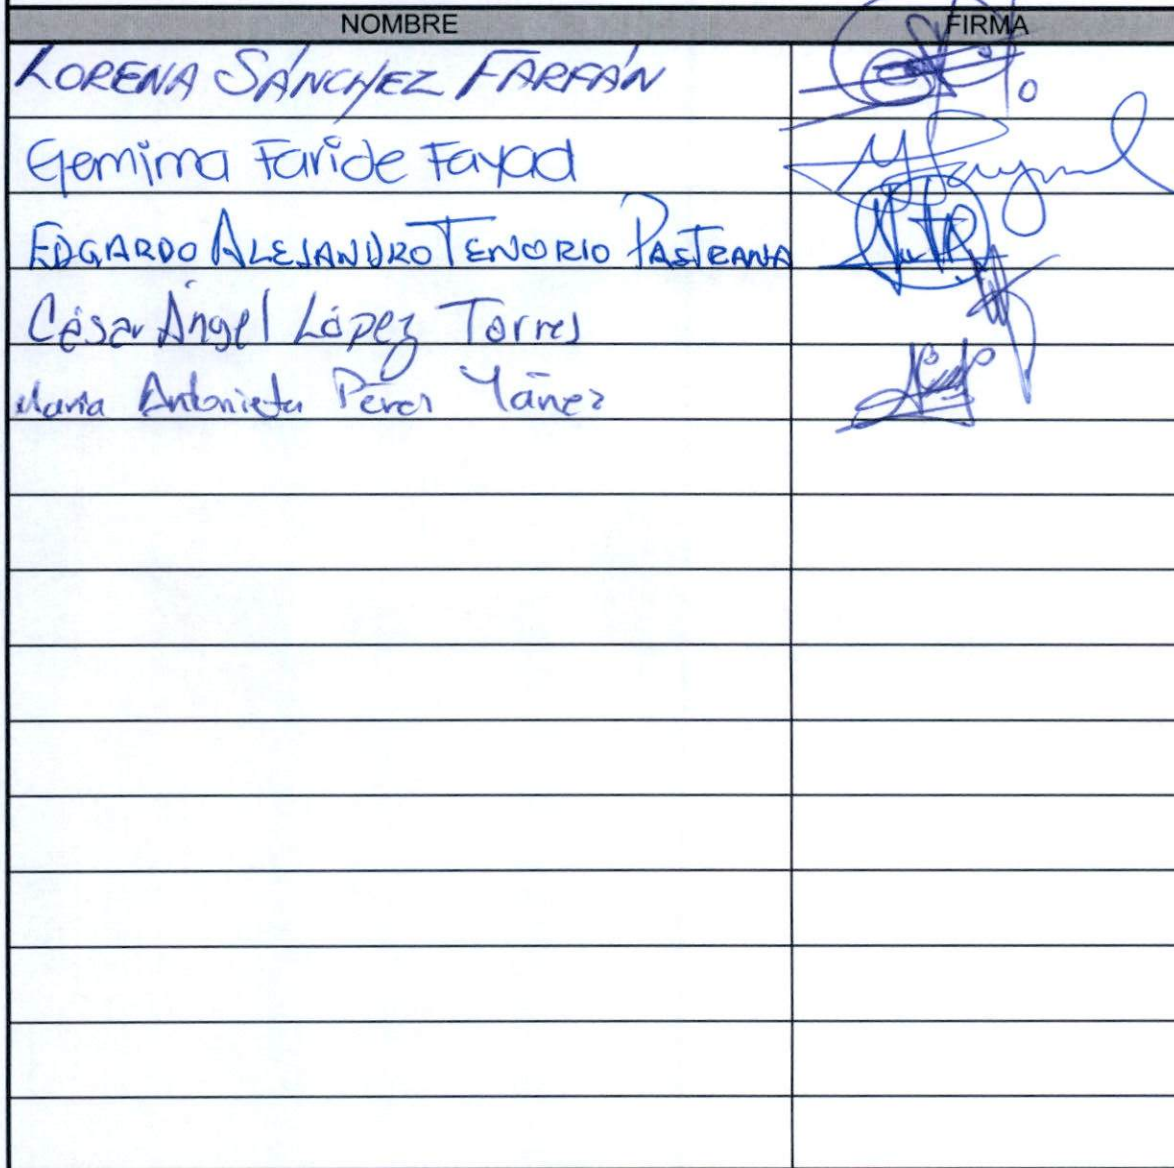 NOMBRE FIRMA
LORENA SÁNCHEZ FARFÁN
Gemima Faride Fayad
EDGARDO ALEJANDRO TENORIO PASTRANA
César Ángel López Torres
Maria Antonieta Pérez Yáñez